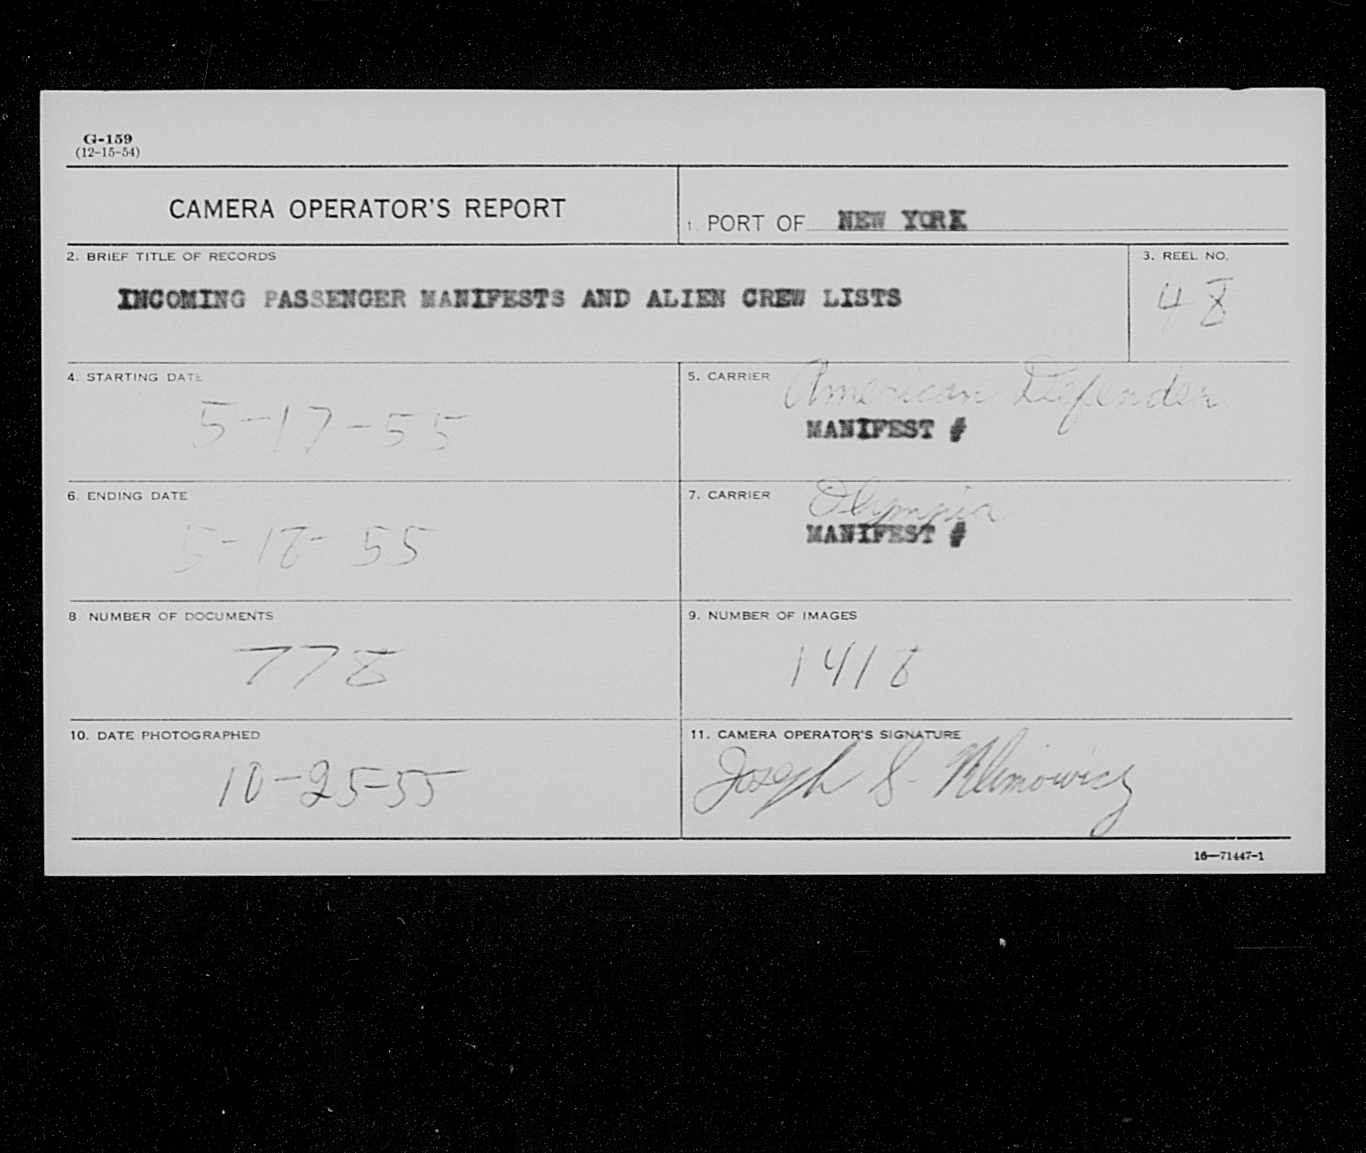 G-159
(12-15-54)
CAMERA OPERATOR'S REPORT
1. PORT OF NEW YORK
2. BRIEF TITLE OF RECORDS
INCOMING PASSENGER MANIFESTS AND ALIEN CREW LISTS
3. REEL NO.
48
4. STARTING DATE
5-17-55
5. CARRIER American Defender
MANIFEST #
6. ENDING DATE
5-18-55
7. CARRIER Olympia
MANIFEST #
8 NUMBER OF DOCUMENTS
778
9. NUMBER OF IMAGES
1418
10. DATE PHOTOGRAPHED
10-25-55
11. CAMERA OPERATOR'S SIGNATURE
Joseph S. Klimowicz
16—71447-1